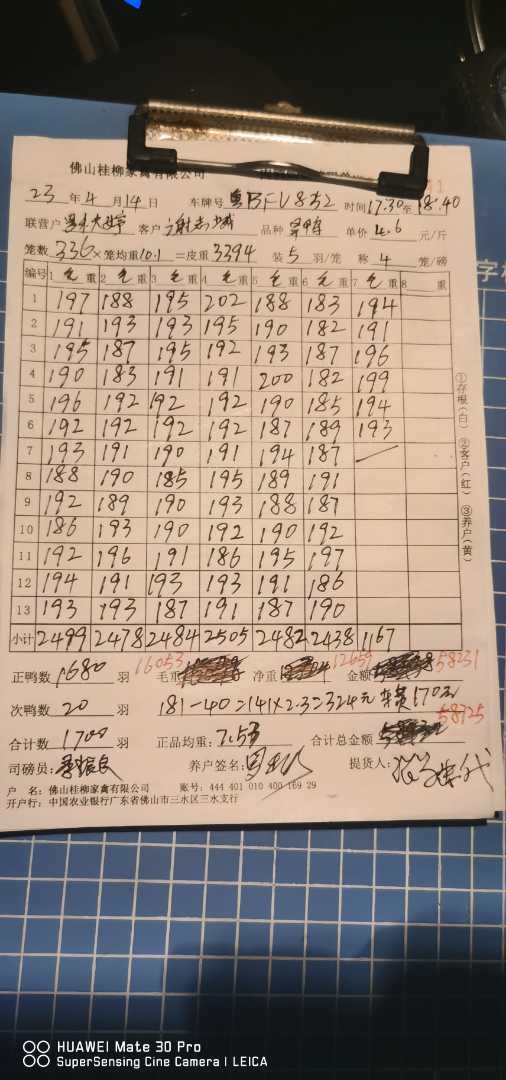 佛山桂柳家禽有限公司
23年4月14日 车牌号 粤BFV852 时间17.30至18.40
联营户 客户 品种 单价 4.6 元/斤
笼数 336×笼均重10.1=皮重3394 装5羽/笼 称4笼/磅
编号 1 毛重 2 毛重 3 毛重 4 毛重 5 毛重 6 毛重 7 毛重 8 重
1 197 188 195 202 188 183 194
2 191 193 193 195 190 182 191
3 195 187 195 192 193 187 196
4 190 183 191 191 200 182 199
5 196 192 192 192 190 185 194
6 192 192 192 192 187 189 193
7 193 191 190 191 194 187
8 188 190 185 195 189 191
9 192 189 190 193 188 187
10 186 193 190 192 190 192
11 192 196 191 186 195 197
12 194 191 193 193 191 186
13 193 193 187 191 187 190
小计 2499 2478 2484 2505 2482 2438 1167
正鸭数 1680 羽 毛重 16053 净重 12659 金额 58231
次鸭数 20 羽 181-40=141×2.3=324元 170元
58725
合计数 1700 羽 正品均重:7.53 合计总金额
司磅员: 养户签名: 提货人:
户 名:佛山桂柳家禽有限公司 账号:444 401 010 400 169 29
开户行:中国农业银行广东省佛山市三水区三水支行
①存根(白) ②客户(红) ③养户(黄)
HUAWEI Mate 30 Pro
SuperSensing Cine Camera | LEICA